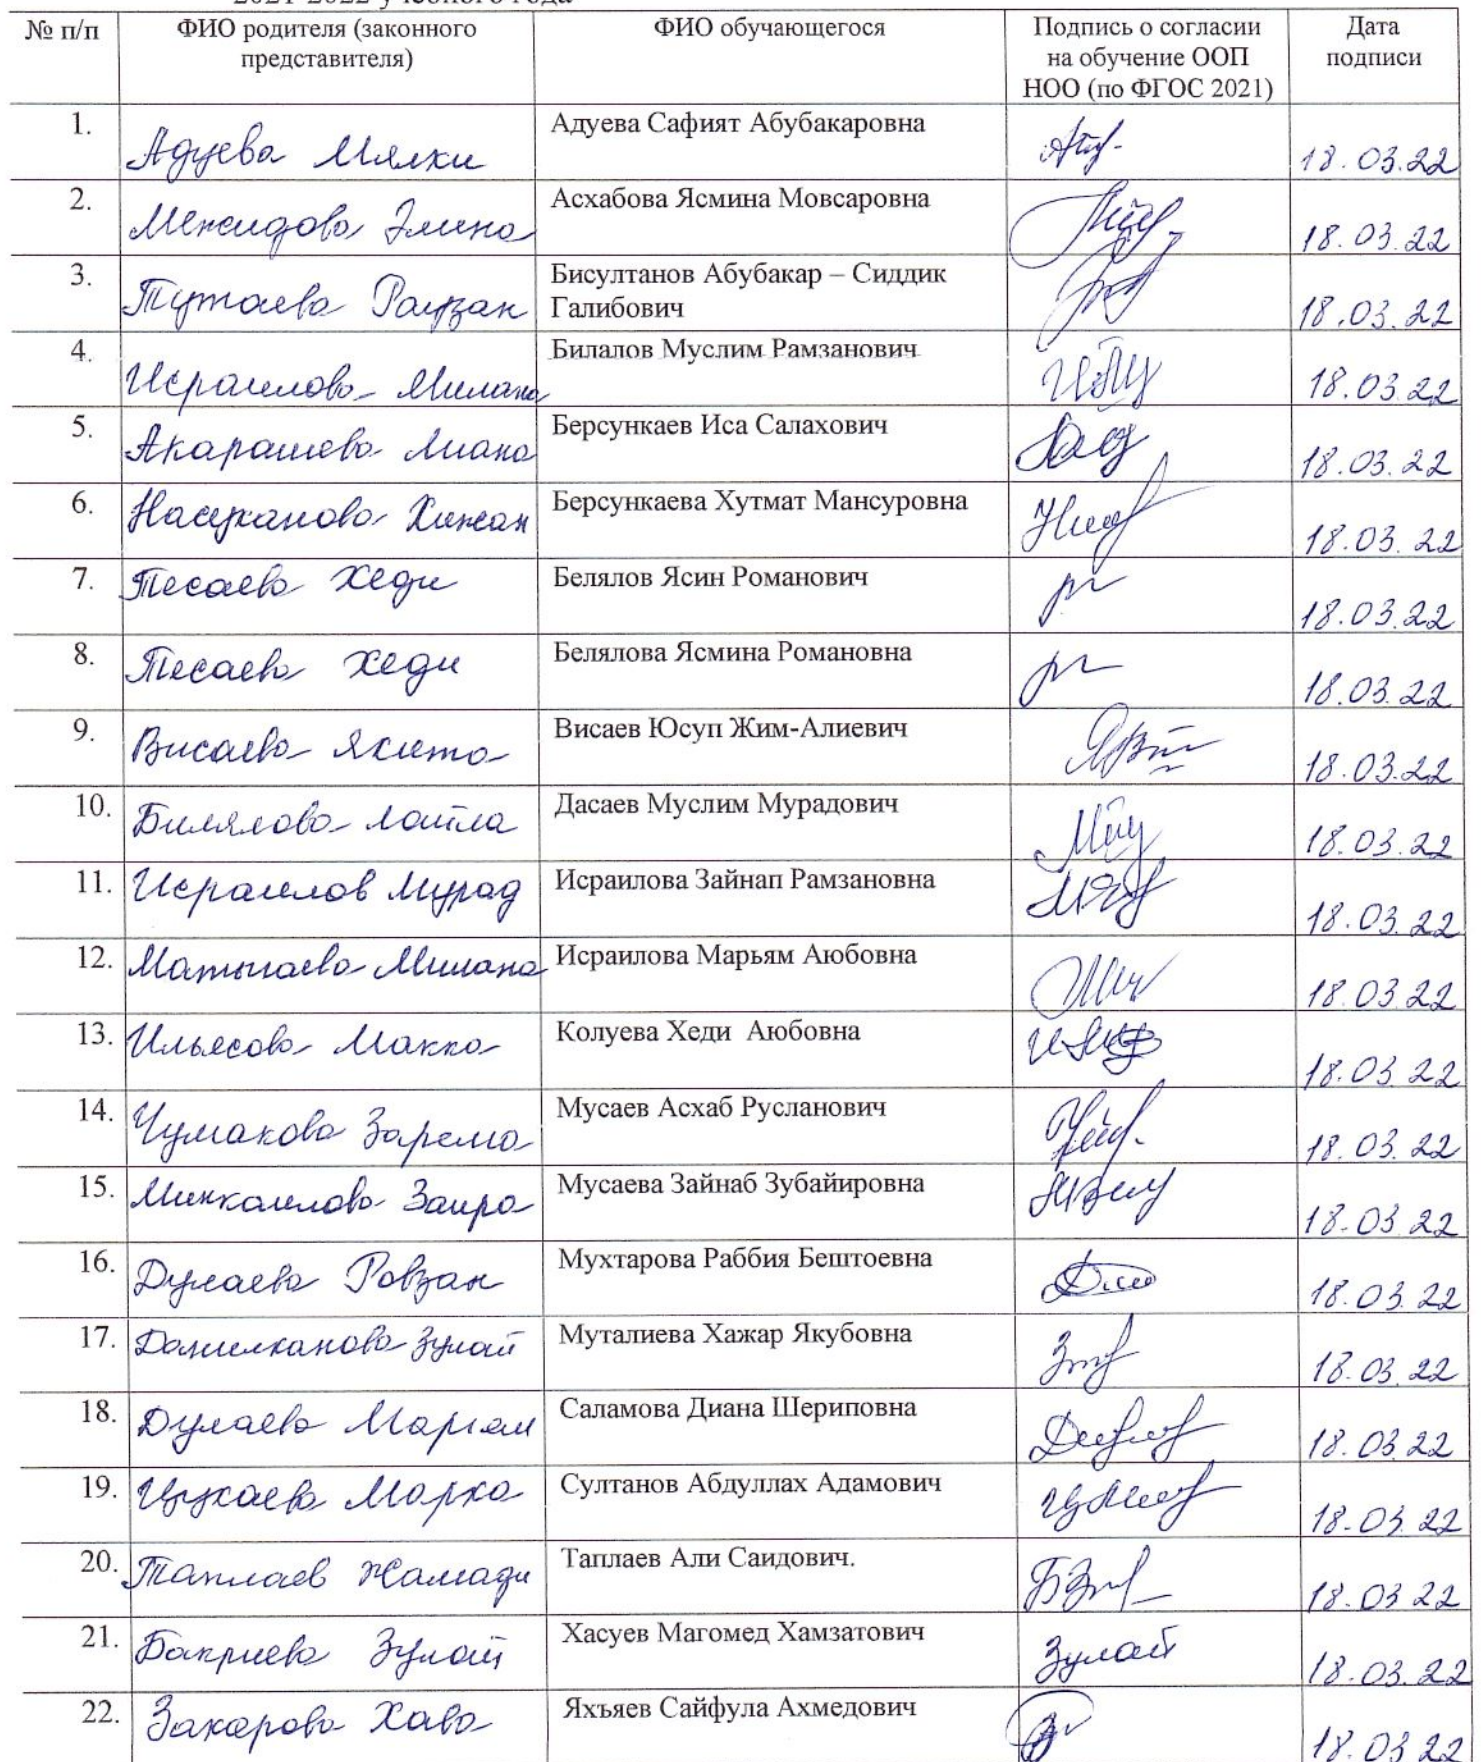 2021-2022 учебного года
№ п/п ФИО родителя (законного представителя) ФИО обучающегося Подпись о согласии на обучение ООП НОО (по ФГОС 2021) Дата подписи
1. Адуева Милки Адуева Сафият Абубакаровна 18.03.22
2. Межидова Элина Асхабова Ясмина Мовсаровна 18.03.22
3. Тутаева Раузан Бисултанов Абубакар – Сиддик Галибович 18.03.22
4. Исраилова Милана Билалов Муслим Рамзанович 18.03.22
5. Акарашева Лиана Берсункаев Иса Салахович 18.03.22
6. Насуханова Хижан Берсункаева Хутмат Мансуровна 18.03.22
7. Тесаева Хеди Белялов Ясин Романович 18.03.22
8. Тесаева Хеди Белялова Ясмина Романовна 18.03.22
9. Висаева Якита Висаев Юсуп Жим-Алиевич 18.03.22
10. Билялова Лайла Дасаев Муслим Мурадович 18.03.22
11. Исраилов Мурад Исраилова Зайнап Рамзановна 18.03.22
12. Матыгаева Милана Исраилова Марьям Аюбовна 18.03.22
13. Ильясова Макка Колуева Хеди Аюбовна 18.03.22
14. Чумакова Зарема Мусаев Асхаб Русланович 18.03.22
15. Минкаилова Заира Мусаева Зайнаб Зубайировна 18.03.22
16. Дулаева Ровзан Мухтарова Раббия Бештоевна 18.03.22
17. Данилханова Зулай Муталиева Хажар Якубовна 18.03.22
18. Дулаева Марьям Саламова Диана Шериповна 18.03.22
19. Цухаева Марха Султанов Абдуллах Адамович 18.03.22
20. Таплаев Хамади Таплаев Али Саидович. 18.03.22
21. Бакриева Зулай Хасуев Магомед Хамзатович Зулай 18.03.22
22. Закарова Хава Яхъяев Сайфула Ахмедович 18.03.22